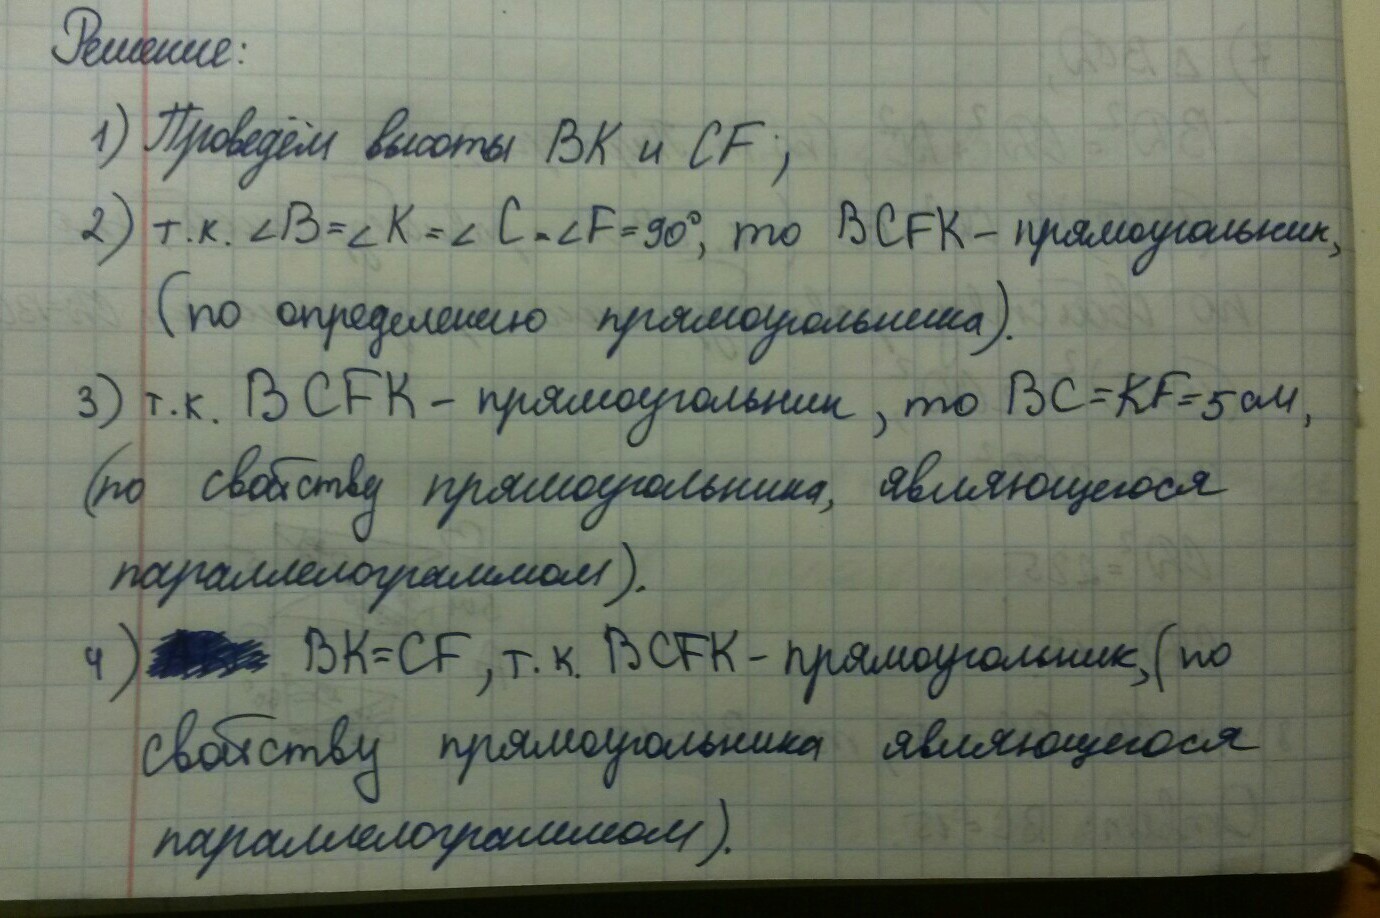 Решение:
1) Проведём высоты BK и CF;
2) т.к. ∠B=∠K=∠C=∠F=90°, то BCFK – прямоугольник,
(по определению прямоугольника).
3) т.к. BCFK – прямоугольник, то BC=KF=5см,
(по свойству прямоугольника, являющегося
параллелограммом).
4) BK=CF, т.к. BCFK – прямоугольник, (по
свойству прямоугольника являющегося
параллелограммом).